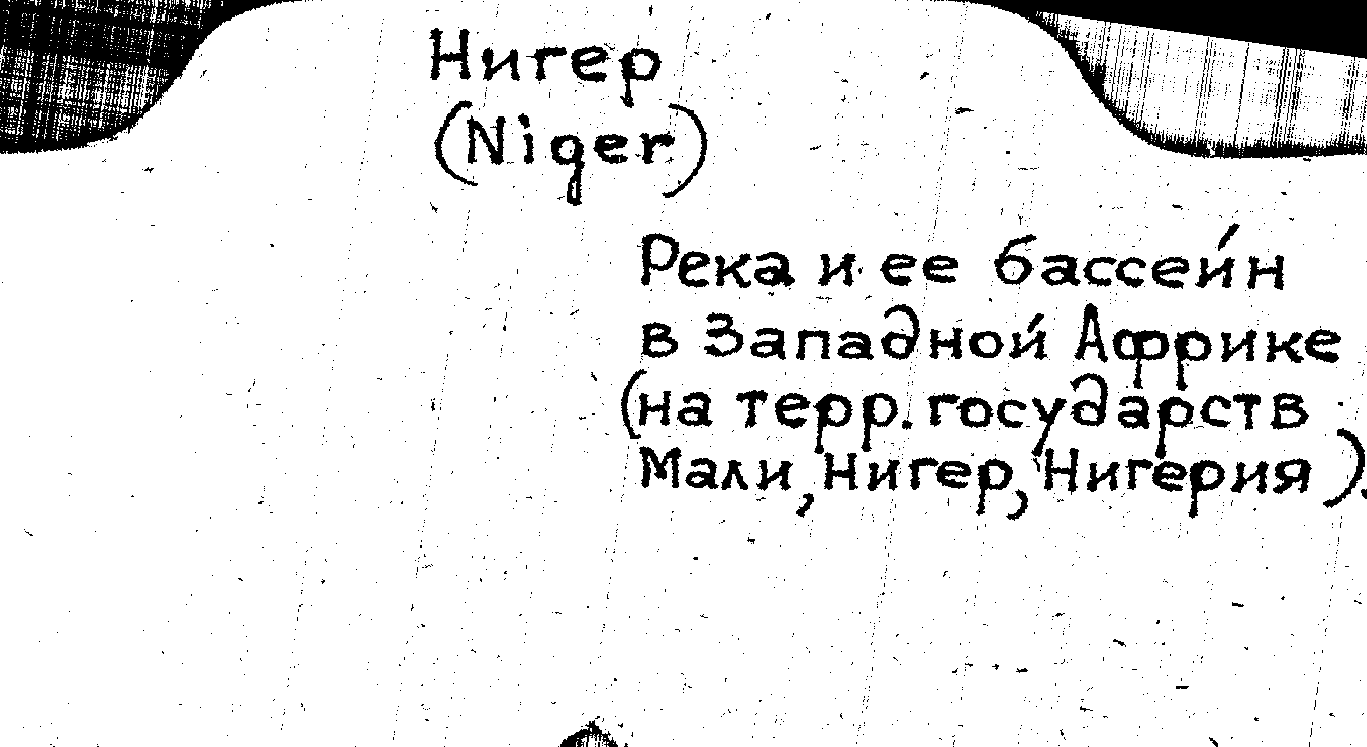 Нигер
(Niger)
Река и ее бассейн
в Западной Африке
(на терр. государств
Мали, Нигер, Нигерия).